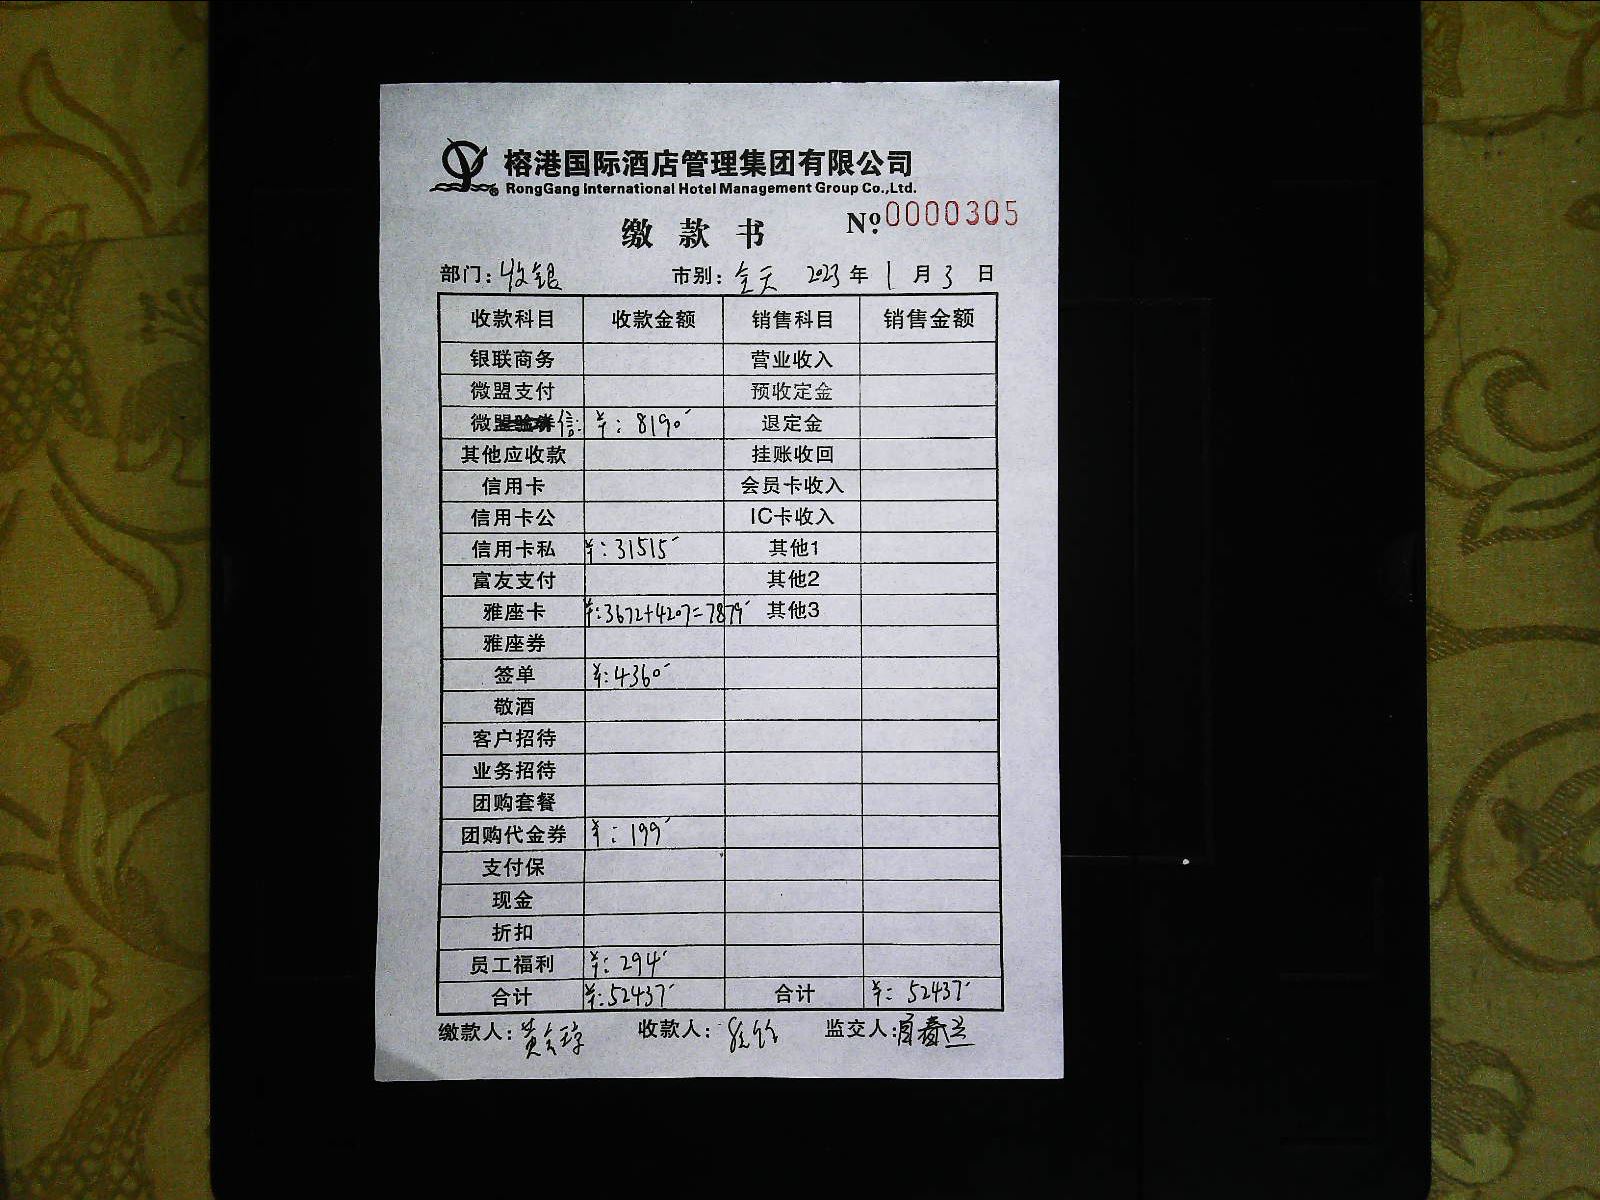 榕港国际酒店管理集团有限公司
RongGang International Hotel Management Group Co.,Ltd.
缴款书 №:0000305
部门:收银 市别:全天 2023年1月3日
收款科目 收款金额 销售科目 销售金额
银联商务 营业收入
微盟支付 预收定金
微信: ¥:8190 退定金
其他应收款 挂账收回
信用卡 会员卡收入
信用卡公 IC卡收入
信用卡私 ¥:31515 其他1
富友支付 其他2
雅座卡 ¥:3672+4207=7879 其他3
雅座券
签单 ¥:4360
敬酒
客户招待
业务招待
团购套餐
团购代金券 ¥:199
支付保
现金
折扣
员工福利 ¥:294
合计 ¥:52437 合计 ¥:52437
缴款人: 收款人: 监交人: